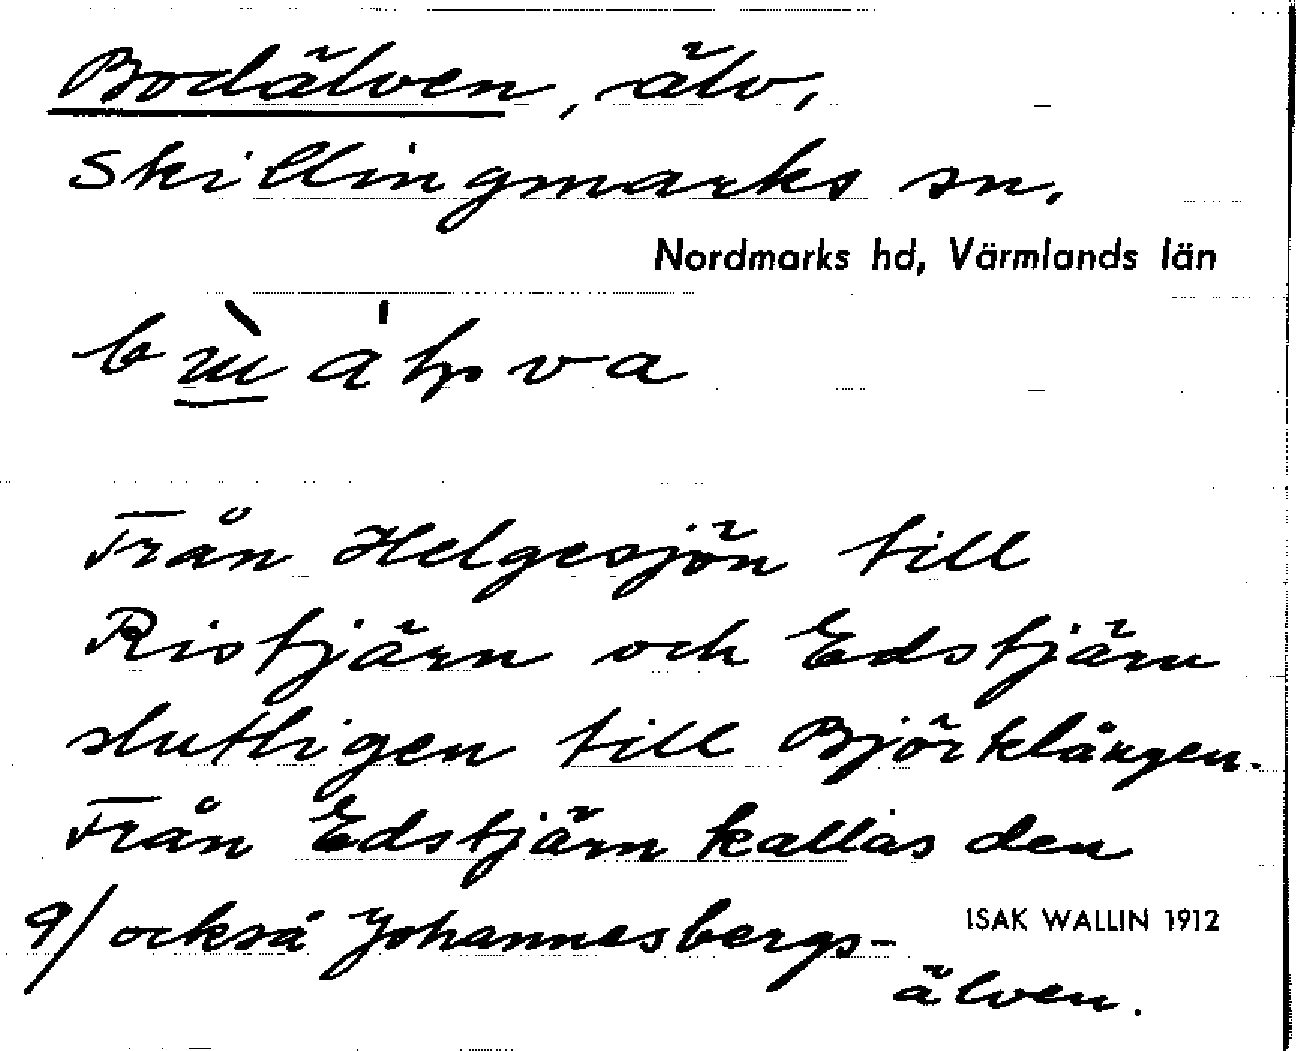 Bodälven, älv,
Skillingmarks sn.
Nordmarks hd, Värmlands län
Från Helgesjön till
Ristjärn och Edstjärn
slutligen till Björklången.
Från Edstjärn kallas den
9/ också Johannesbergs-
ISAK WALLIN 1912
älven.